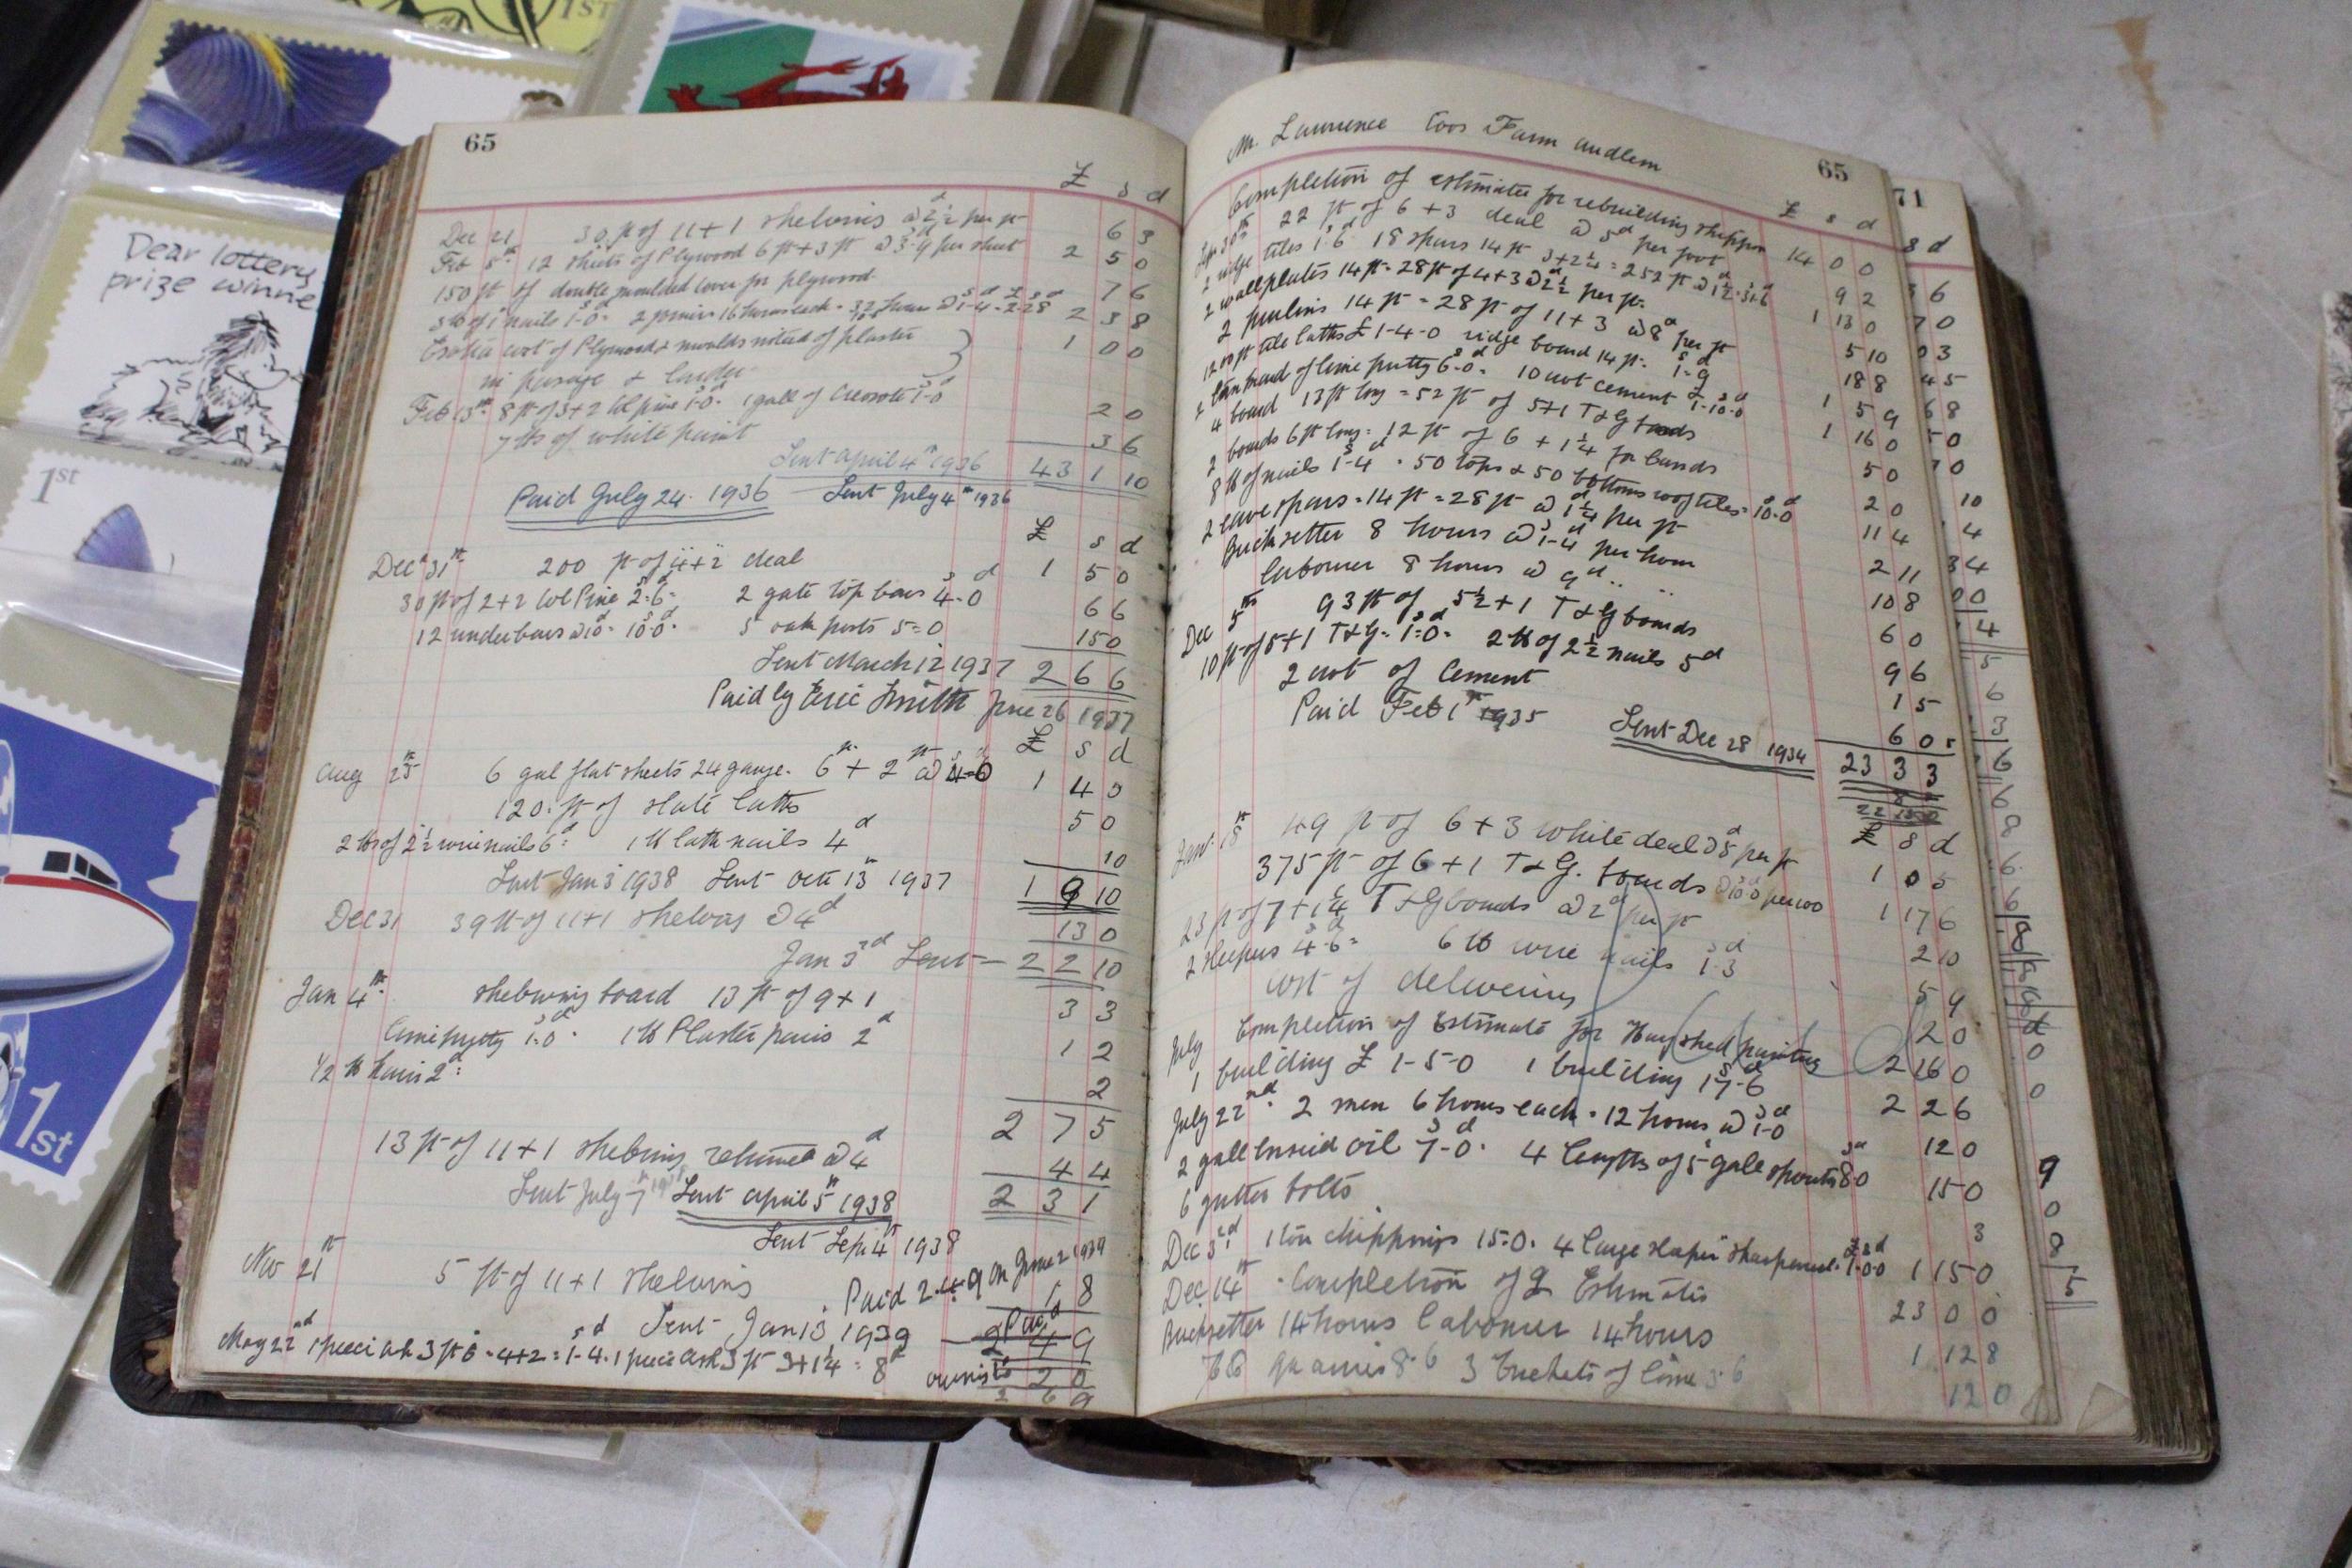 1ST
Dear lottery
prize winne
1st
1st
65
£ s d
Dec 21 30 ft of 11+1 shelving @ 2½d per ft 6 3
Feb 5th 12 sheets of Plywood 6 ft + 3 ft @ 3-9 per sheet 2 5 0
150 ft of double moulded cover for plywood 7 6
nails 1-0 2 16 hours each = 32 hours @ 1-4 = 2-2-8 2 3 8
Extra cost of Plywood & moulds instead of plaster 1 0 0
in passage & larder
Feb 13th 8 ft of 3+2 1-0 1 gall of Creosote 1-0 2 0
7 lbs of white paint 3 6
Sent April 4th 1936 43 1 10
Paid July 24 1936 Sent July 4th 1936
£ s d
Dec 31st 200 ft of 4+2 deal 1 5 0
30 ft of 2+2 Pine 2-6 2 gate top bars 4-0 6 6
12 under bars @ 10 10-0 5 oak posts 5-0 15 0
Sent March 12 1937 2 6 6
Paid by Eric Smith June 26 1937
£ s d
Aug 25th 6 gal flat sheets 24 gauge. 6 ft + 2 ft @ 4-0 1 4 0
120 ft of slate laths 5 0
2 lbs of 2½ wire nails 6d 1 lb lath nails 4d 10
Sent Jan 3 1938 Sent Oct 13th 1937 1 9 10
Dec 31 39 ft of 11+1 shelving @ 4d 13 0
Jan 3rd Sent 2 2 10
Jan 4th shelving board 13 ft of 9+1 3 3
Lime putty 1-0 1 lb Plaster paris 2d 1 2
1/2 lb hair 2d 2
2 7 5
13 ft of 11+1 shelving returned @ 4d 4 4
Sent July 7th 1938 Sent April 5th 1938 2 3 1
Sent Sep 4th 1938
Nov 21st 5 ft of 11+1 shelving 1 8
Paid 2-4-9 on June 2 1939
Sent Jan 13 1939 Paid 2 4 9
May 22nd 1 piece ash 3 ft 6 4+2 = 1-4. 1 piece ash 3 ft 3+1¼ = 8d owing 2 0
2 6 9
Mr. Lawrence Coos Farm Audlem
65
Completion of estimates for rebuilding shippon £ s d
Sep 30th 22 ft of 6+3 deal @ 5d per foot 14 0 0
2 ridge tiles 1-6 18 spars 14 ft 3+2¼ = 252 ft @ 1½ 31-6 9 2
2 wall plates 14 ft = 28 ft of 4+3 @ 2½ per ft. 1 13 0
2 purlins 14 ft = 28 ft of 11+3 @ 8d per ft 5 10
1200 ft tile laths £1-4-0 ridge board 14 ft 1-9 18 8
2 load of lime putty 6-0 10 cwt cement 1-10-0 1 5 9
4 board 13 ft long = 52 ft of 5+1 T&G boards 1 16 0
2 boards 6 ft long = 12 ft of 6+1¼ for bands 5 0
8 lb of nails 1-4 50 tops & 50 bottoms roof tiles 10-0 2 0
2 eave spars = 14 ft = 28 ft @ 1¼ per ft 11 4
Bricksetter 8 hours @ 1-4 per hour 2 11
Labourer 8 hours @ 9d " " 10 8
Dec 5th 93 ft of 5½+1 T&G boards 6 0
10 ft of 5+1 T&G 1-0 2 lb of 2½ nails 5d 9 6
2 cwt of cement 1 5
Paid Feb 1st 1935 6 0
Sent Dec 28 1934 23 3 3
£ s d
Jan 18th 49 ft of 6+3 white deal @ 5d per ft 1 0 5
375 ft of 6+1 T&G. boards @ 10-0 per 100 1 17 6
23 ft of 7+1¼ T&G boards @ 2d per ft 2 10
2 sleepers 4-6 6 lb wire nails 1-3 5 9
cost of delivering 2 0
July Completion of Estimate for Hayshed painting 2 16 0
1 building £1-5-0 1 building 17-6 2 2 6
July 22nd 2 men 6 hours each = 12 hours @ 1-0 12 0
2 gall linseid oil 7-0 4 lengths of 5" galv spouts 8-0 15 0
6 gutter bolts 3
Dec 3rd 1 ton chippings 15-0 4 large sharpened 1-0-0 1 15 0
Dec 14th Completion of 2 Estimates 23 0 0
Bricksetter 14 hours Labourer 14 hours 1 12 8
quarries 8-6 3 buckets of lime 3-6 12 0
71
s d